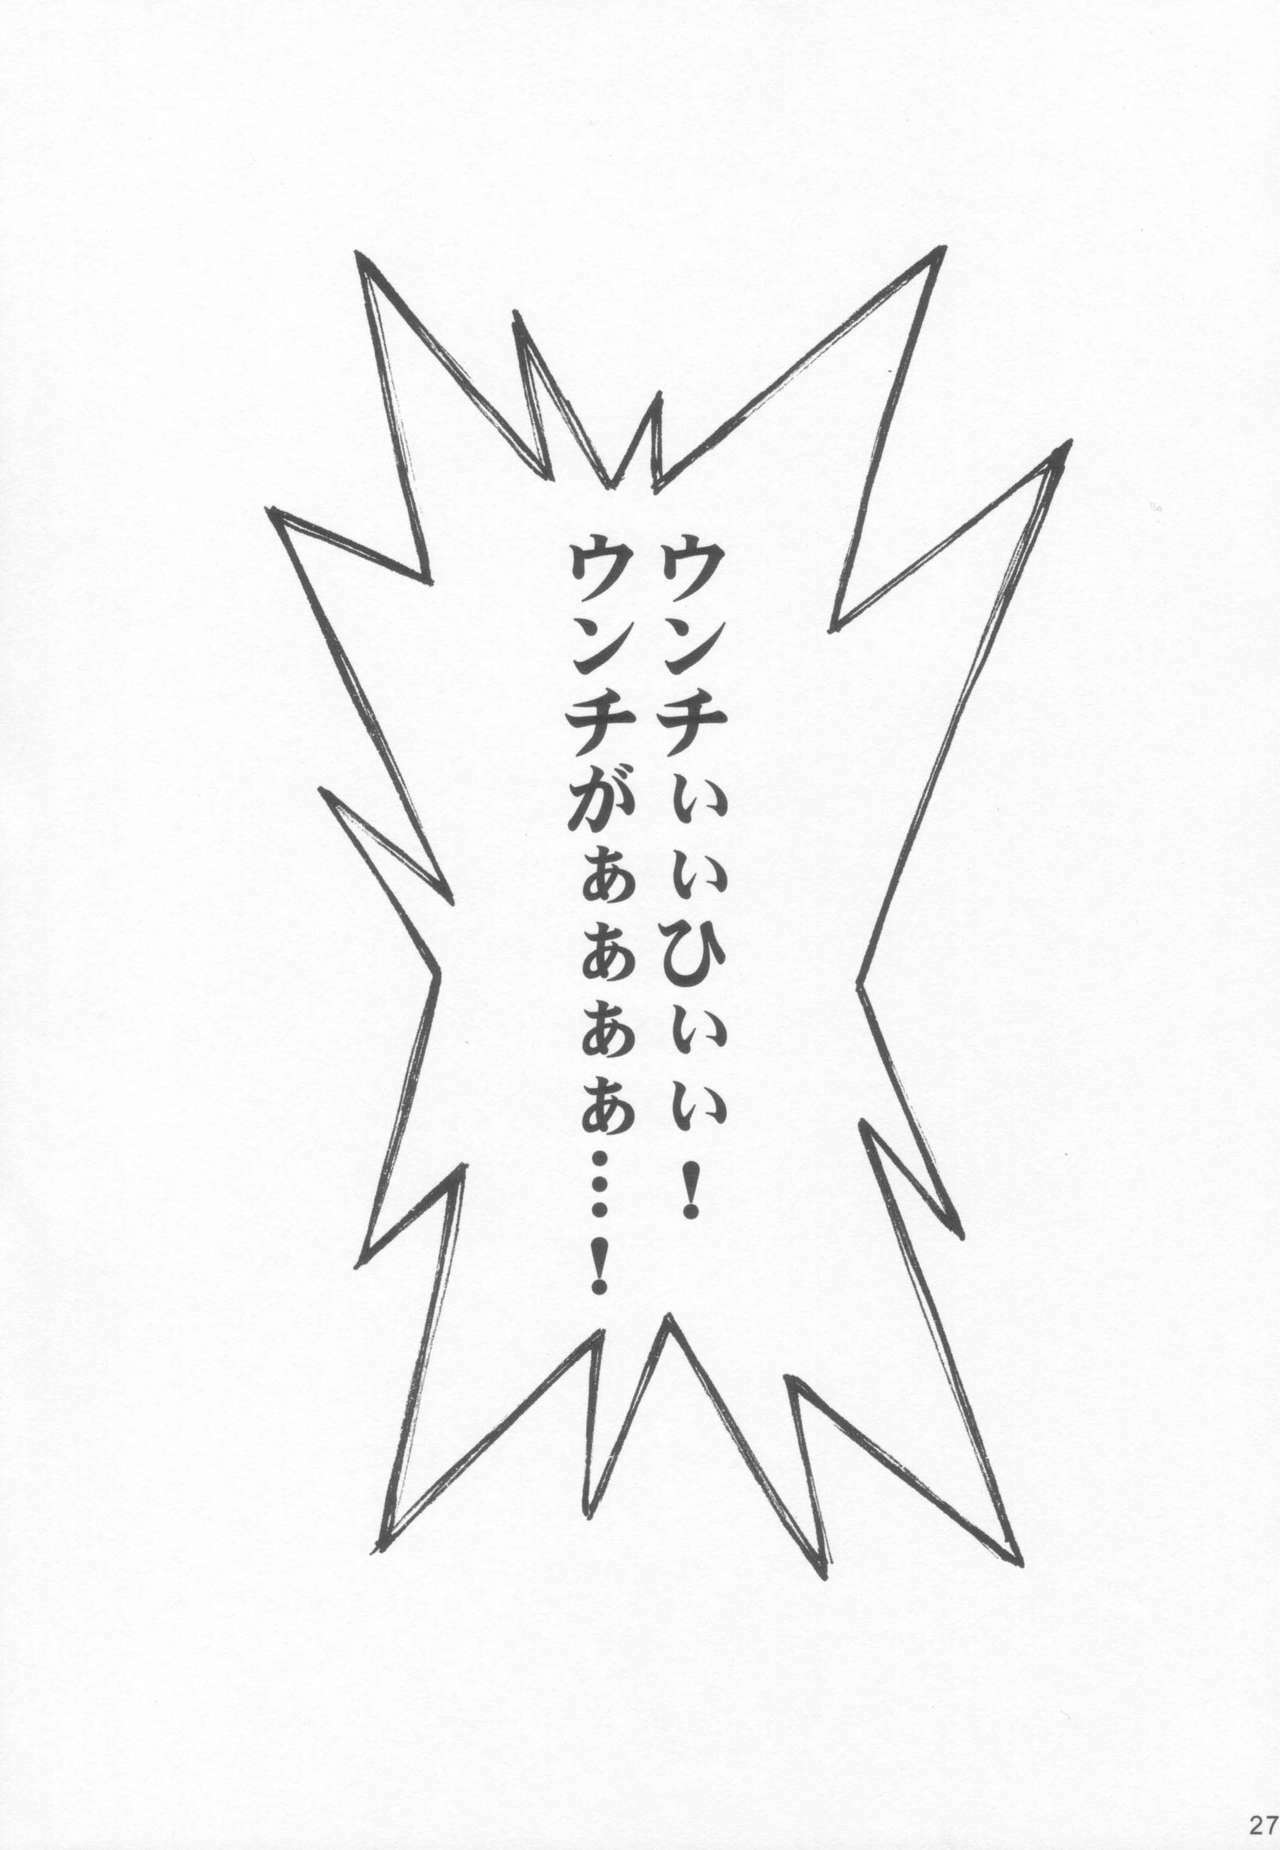 ウンチぃぃひぃぃ！
ウンチがぁぁぁぁ…！
27